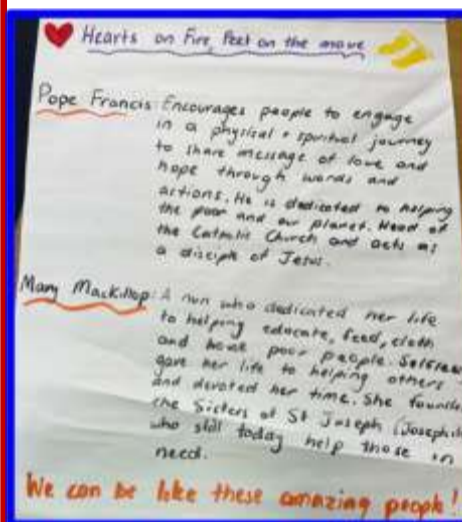 Hearts on Fire, Feet on the move
Pope Francis: Encourages people to engage
in a physical + spiritual journey
to share message of love and
hope through words and
actions. He is dedicated to helping
the poor and our planet. Head of
the Catholic Church and acts as
a disciple of Jesus.
Mary Mackillop: A nun who dedicated her life
to helping educate, feed, cloth
and house poor people. Selfless
gave her life to helping others
and devoted her time. She founde
the Sisters of St Joseph (Josephi
who still today help those in
need.
We can be like these amazing people!